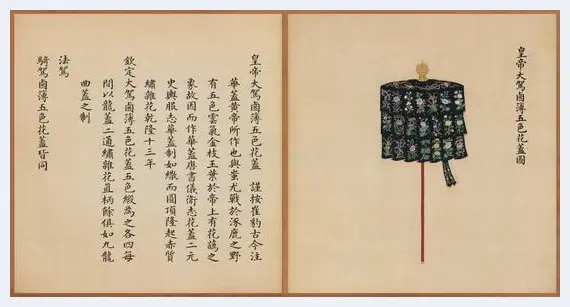 皇帝大駕鹵簿五色花蓋圖
皇帝大駕鹵簿五色花蓋 謹按崔豹古今注
華蓋黃帝所作也與蚩尤戰於涿鹿之野
有五色雲氣金枝玉葉於帝上有花蘤之
象故因而作華蓋唐書儀衛志花蓋二元
史輿服志華蓋制如繖而圓頂隆起赤質
繡雜花乾隆十三年
欽定大駕鹵簿五色花蓋五色緞為之各四每
間以龍蓋二通繡雜花直柄餘俱如九龍
曲蓋之制
法駕
騎駕鹵簿五色花蓋皆同